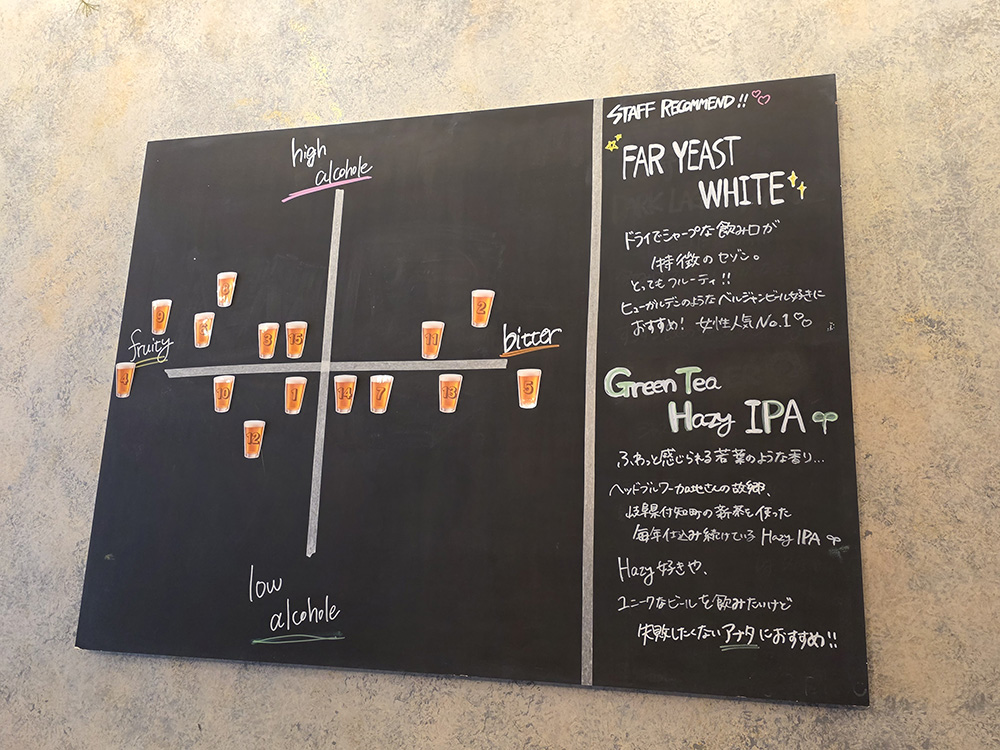 high
alcohole
8
9
4
3
15
11
2
fruity
bitter
4
10
1
14
7
13
5
12
low
alcohole
STAFF RECOMMEND!!
FAR YEAST
WHITE
ドライでシャープな飲み口が
特徴のセゾン。
とってもフルーティ!!
ヒューガルデンのようなベルジャンビール好きに
おすすめ! 女性人気No.1
Green Tea
Hazy IPA
ふわっと感じられる若葉のような香り...
ヘッドブルワー加地さんの故郷、
岐阜県付知町の新茶を使った
毎年仕込み続けている Hazy IPA
Hazy好きや、
ユニークなビールを飲みたいけど
失敗したくないアナタにおすすめ!!